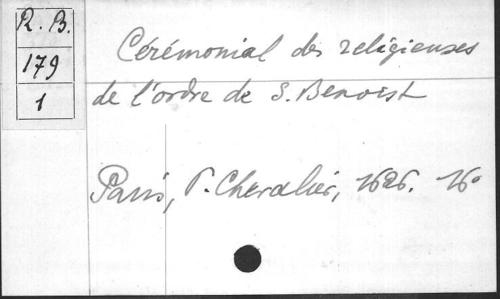 R. B.
179
1
Cérémonial des religieuses
de l'ordre de S. Benoist
Paris, P. Chevalier, 1626. 16°